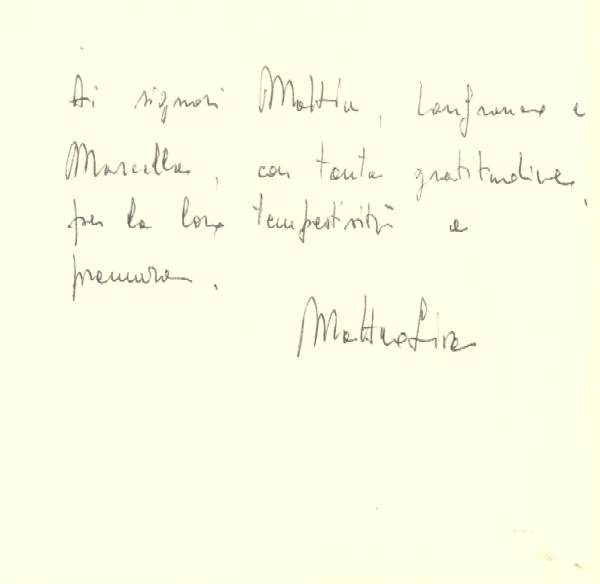 Ai signori Mattia, Lanfranco e
Marcella, con tanta gratitudine,
per la loro tempestività e
premura.
Matteo